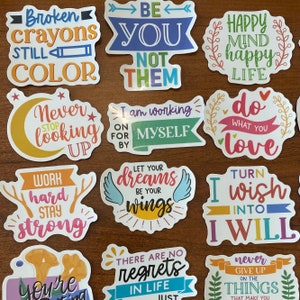 Broken
crayons
STILL
COLOR
BE
YOU
NOT
THEM
HAPPY
MIND
happy
LIFE
Never
STOP
looking
UP
I am working
ON
FOR MYSELF
BY
do
WHAT YOU
Love
WORK
hard
STAY
strong
LET YOUR
dreams
BE YOUR
wings
I TURN
I wish
INTO
I WILL
you're
THERE ARE NO
regrets
IN LIFE
JUST
never
GIVE UP
ON THE
THINGS
THAT MAKE YOU